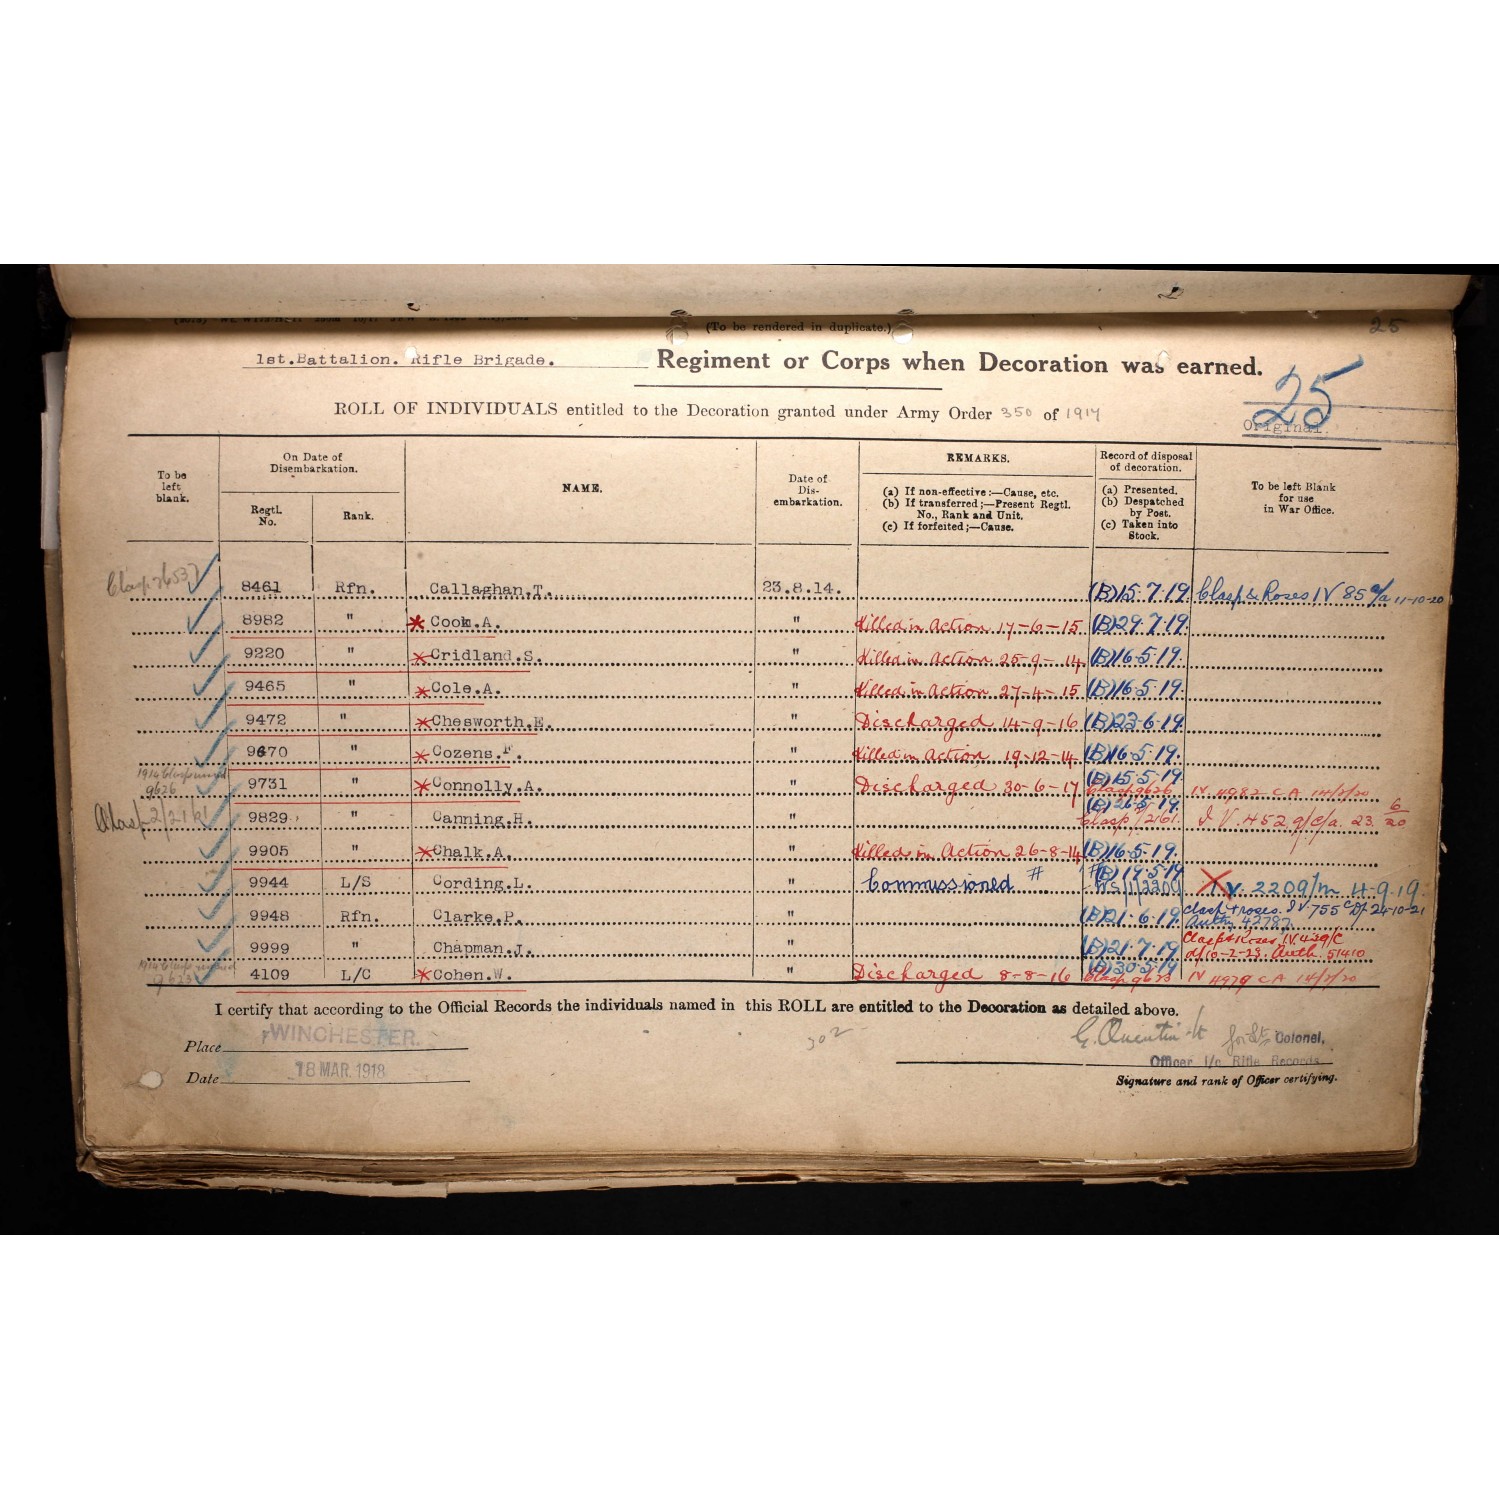 (To be rendered in duplicate.)
25
1st.Battalion. Rifle Brigade. Regiment or Corps when Decoration was earned.
25
ROLL OF INDIVIDUALS entitled to the Decoration granted under Army Order 350 of 1917
Original.
To be left blank.
On Date of Disembarkation.
Regtl. No.
Rank.
NAME.
Date of Dis-embarkation.
REMARKS.
(a) If non-effective:—Cause, etc.
(b) If transferred;—Present Regtl. No., Rank and Unit.
(c) If forfeited;—Cause.
Record of disposal of decoration.
(a) Presented.
(b) Despatched by Post.
(c) Taken into Stock.
To be left Blank for use in War Office.
Clasp 26537 8461 Rfn. Callaghan.T. 23.8.14. (B) 15.7.19. Clasp & Roses IV 85 11-10-20
8982 " Cook.A. " Killed in Action 17-6-15 (B) 29.7.19.
9220 " Cridland.S. " Killed in Action 25-9-14 (B) 16.5.19.
9465 " Cole.A. " Killed in Action 27-4-15 (B) 16.5.19.
9472 " Chesworth.E. " Discharged 14-9-16 (B) 23-6-19.
9670 " Cozens.F. " Killed in Action 19-12-14 (B) 16.5.19.
1914 Clasp 9626 9731 " Connolly.A. " Discharged 30-6-17 (B) 15.5.19 Clasp 9626 IV 4982 CA 14/2/20
Clasp 2/2161 9829 " Canning.H. " (B) 26-5-19. Clasp 2/2161. IV. 4529/C/A. 23 6/20
9905 " Chalk.A. " Killed in Action 26-8-14 (B) 16-5-19.
9944 L/S Cording.L. " Commissioned # # (B) 17-5-19 WS/1/2209 X IV. 2209/M 4.9.19.
9948 Rfn. Clarke.P. " (B) 21.6.19. Clasp & roses. IV. 755 24-10-21 Auth 42787
9999 " Chapman.J. " (B) 21.7.19 Clasp & Roses IV.439/C d/10-2-23. Auth. 51410
1914 Clasp 9623 4109 L/C Cohen.W. " Discharged 8-8-16 (B) 30.5.19 Clasp 9623 IV 4979 CA 14/2/20
I certify that according to the Official Records the individuals named in this ROLL are entitled to the Decoration as detailed above.
Place WINCHESTER. 302
for Lt Colonel,
Officer i/c Rifle Records
Date 18 MAR. 1918
Signature and rank of Officer certifying.